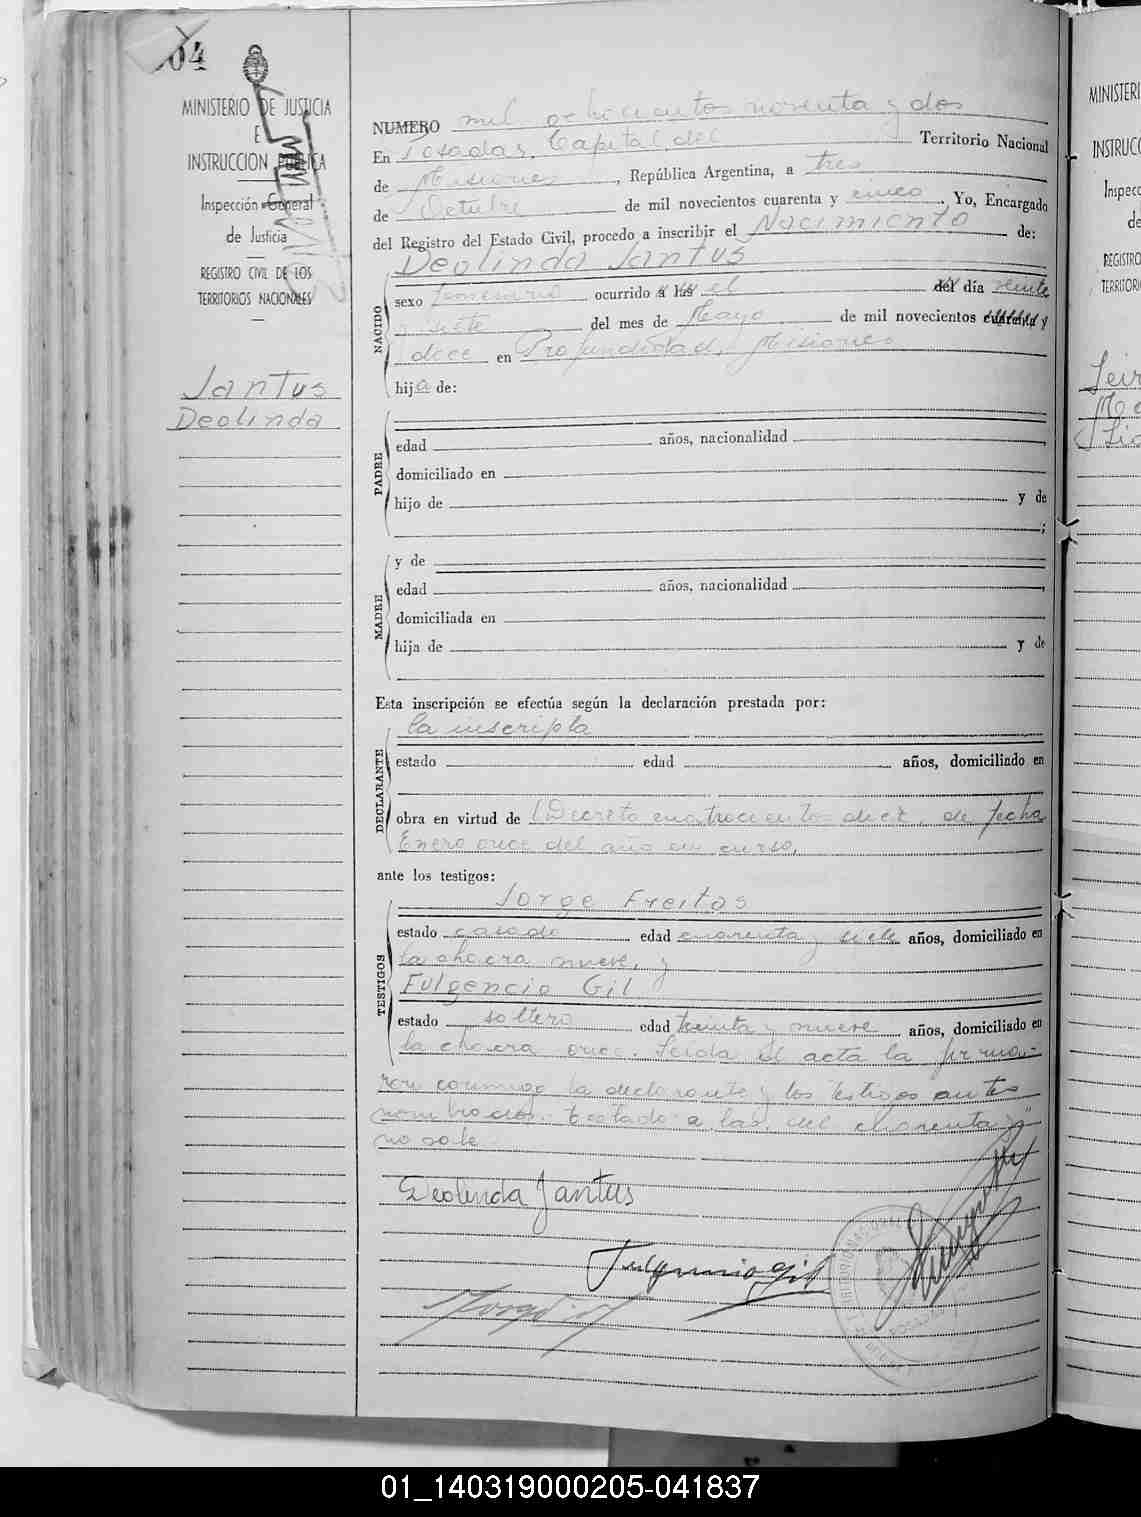 04
MINISTERIO DE JUSTICIA
E
INSTRUCCION PUBLICA
Inspección General
de Justicia
REGISTRO CIVIL DE LOS
TERRITORIOS NACIONALES
Santus
Deolinda
NUMERO mil ochocientos noventa y dos
En Posadas, Capital del Territorio Nacional
de Misiones, República Argentina, a tres
de Octubre de mil novecientos cuarenta y cinco. Yo, Encargado
del Registro del Estado Civil, procedo a inscribir el Nacimiento de:
NACIDO
Deolinda Santus
sexo femenino ocurrido a las el del día veinte
y siete del mes de Mayo de mil novecientos cuarenta y
doce en Profundidad, Misiones
hija de:
PADRE
edad años, nacionalidad
domiciliado en
hijo de y de
;
MADRE
y de
edad años, nacionalidad
domiciliada en
hija de y de
Esta inscripción se efectúa según la declaración prestada por:
DECLARANTE
la inscripta
estado edad años, domiciliado en
obra en virtud de Decreto cuatrocientos diez, de fecha
Enero once del año en curso,
ante los testigos:
TESTIGOS
Jorge Freitas
estado casado edad cuarenta y siete años, domiciliado en
la chacra nueve, y
Fulgencio Gil
estado soltero edad treinta y nueve años, domiciliado en
la chacra once. Leida el acta la firma-
ron conmigo la declarante y los testigos antes
nombrados. Testado: a las, del cuarenta y"
no vale
Deolinda Santus
Fulgencio Gil
POSADAS
MINISTERI
INSTRUCC
Inspecc
de
REGISTRO
TERRITORI
01_140319000205-041837